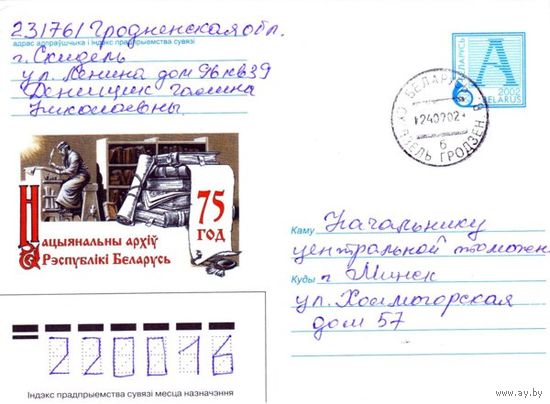 231761 Гродненская обл.
адрас адпраўшчыка і індэкс прадпрыемства сувязі
г. Скидель
ул. Ленина дом 9б кв 39
Денищик Галина
Николаевны
БЕЛАРУСЬ
A
2002
BELARUS
БЕЛАРУСЬ
240702
б
ГРОДЗЕН
75
ГОД
Нацыянальны архіў
Рэспублікі Беларусь
Каму Начальнику
центральной таможен
Куды г Минск
ул. Холмогорская
дом 57
220016
Індэкс прадпрыемства сувязі месца назначэння
www.ay.by